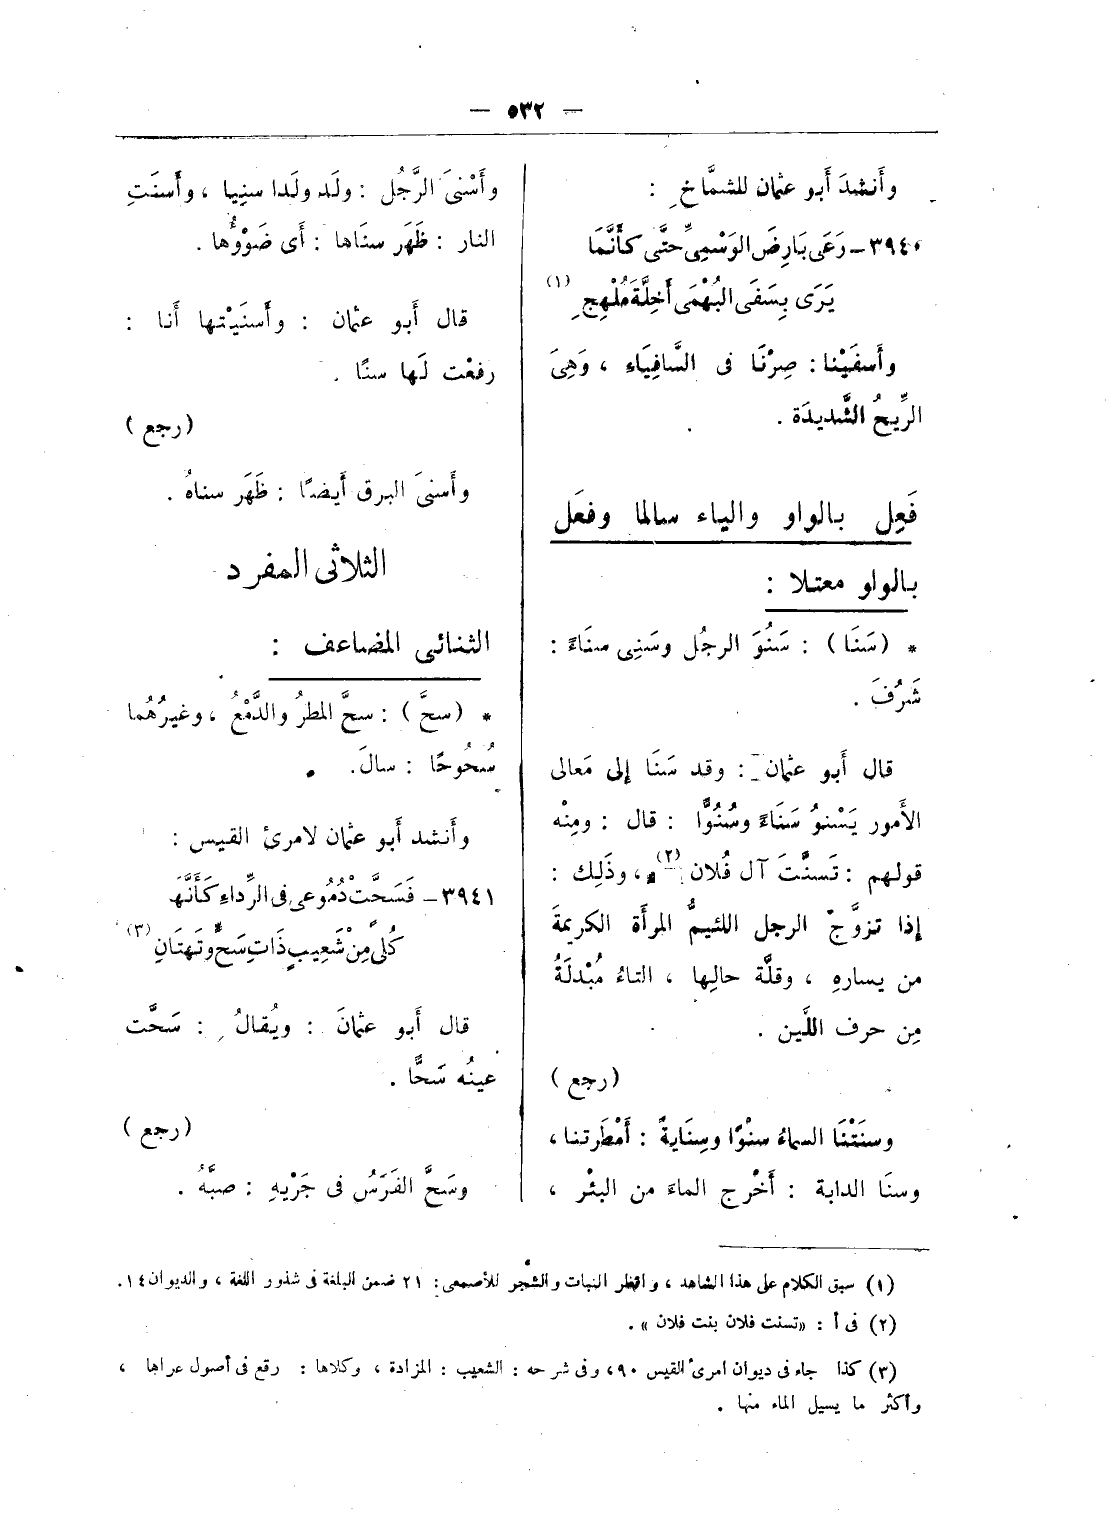 — ٥٣٢ —
وأَنشدَ أَبو عثمان للشمَّاخِ :
٣٩٤٠ – رَعَى بَارِضَ الوَسْمِىِّ حتَّى كأَنَّمَا
يَرَى بِسَفَى البُهْمَى أَخِلَّةَ مُلْهِجِ (١)
وأَسفَيْنا : صِرْنَا فى السَّافِيَاءِ ، وَهِىَ
الرِّيحُ الشَّديدَة .
فَعِل بالواو والياء سالما وفعَل
بالواو معتلا :
* (سَنَا) : سَنُوَ الرجُل وسَنِى سنَاءً :
شَرُفَ .
قال أَبو عثمان : وقد سَنَا إلى مَعالى
الأَمور يَسْنوُ سَنَاءً وسُنُوًّا : قال : ومِنْه
قولهم : تَسنَّتَ آل فُلان (٢) ، وذَلِك :
إذا تزوَّجَ الرجل اللئيمُ المرأَة الكريمةَ
من يسارهِ ، وقلَّة حالِها ، التاءُ مُبْدلَةُ
مِن حرف اللَّين .
(رجع)
وسنَتْنَا السماءُ سنْوًا وسِنَايةً : أَمْطَرتنا ،
وسنَا الدابة : أَخْرج الماءَ من البئْر ،
وأَسْنىَ الرَّجُل : ولَد ولَدا سنِيا ، وأَسنَتِ
النار : ظَهَر سنَاها : أَى ضَوْؤُها .
قال أَبو عثمان : وأَسنَيْتها أَنا :
رفعْت لَها سنًا .
(رجع)
وأَسنىَ البرق أَيضًا : ظَهَر سناهُ .
الثلاثى المفرد
الثنائى المضاعف :
* (سحَّ) : سحَّ المطرُ والدَّمْعُ ، وغيرُهُما
سُحُوحًا : سالَ .
وأَنشد أَبو عثمان لامرئ القيس :
٣٩٤١ – فَسَحَّتْ دُمُوعى فى الرِّداءِ كَأَنَّهَا
كُلًى مِنْ شَعِيبٍ ذَاتِ سَحٍّ وتَهتَانِ (٣)
قال أَبو عثمانَ : ويُقالُ : سَحَّت
عينُه سَحًّا .
(رجع)
وسَحَّ الفَرَسُ فى جَرْيهِ : صبَّهُ .
(١) سبق الكلام على هذا الشاهد ، وانظر النبات والشجر للأصمعى : ٢١ ضمن البلغة فى شذور اللغة ، والديوان ١٤ .
(٢) فى أ : « تسنت فلان بنت فلان » .
(٣) كذا جاء فى ديوان امرئ القيس ٩٠ ، وفى شرحه : الشعيب : المزادة ، وكلاها : رقع فى أصول عراها ،
وأكثر ما يسيل الماء منها .